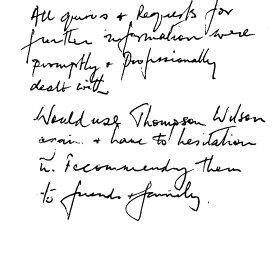 All quiries + Requests for
further information were
promptly + Professionally
dealt with
Would use Thompson Wilson
again + have to hesitation
in recommending them
to friends + family.